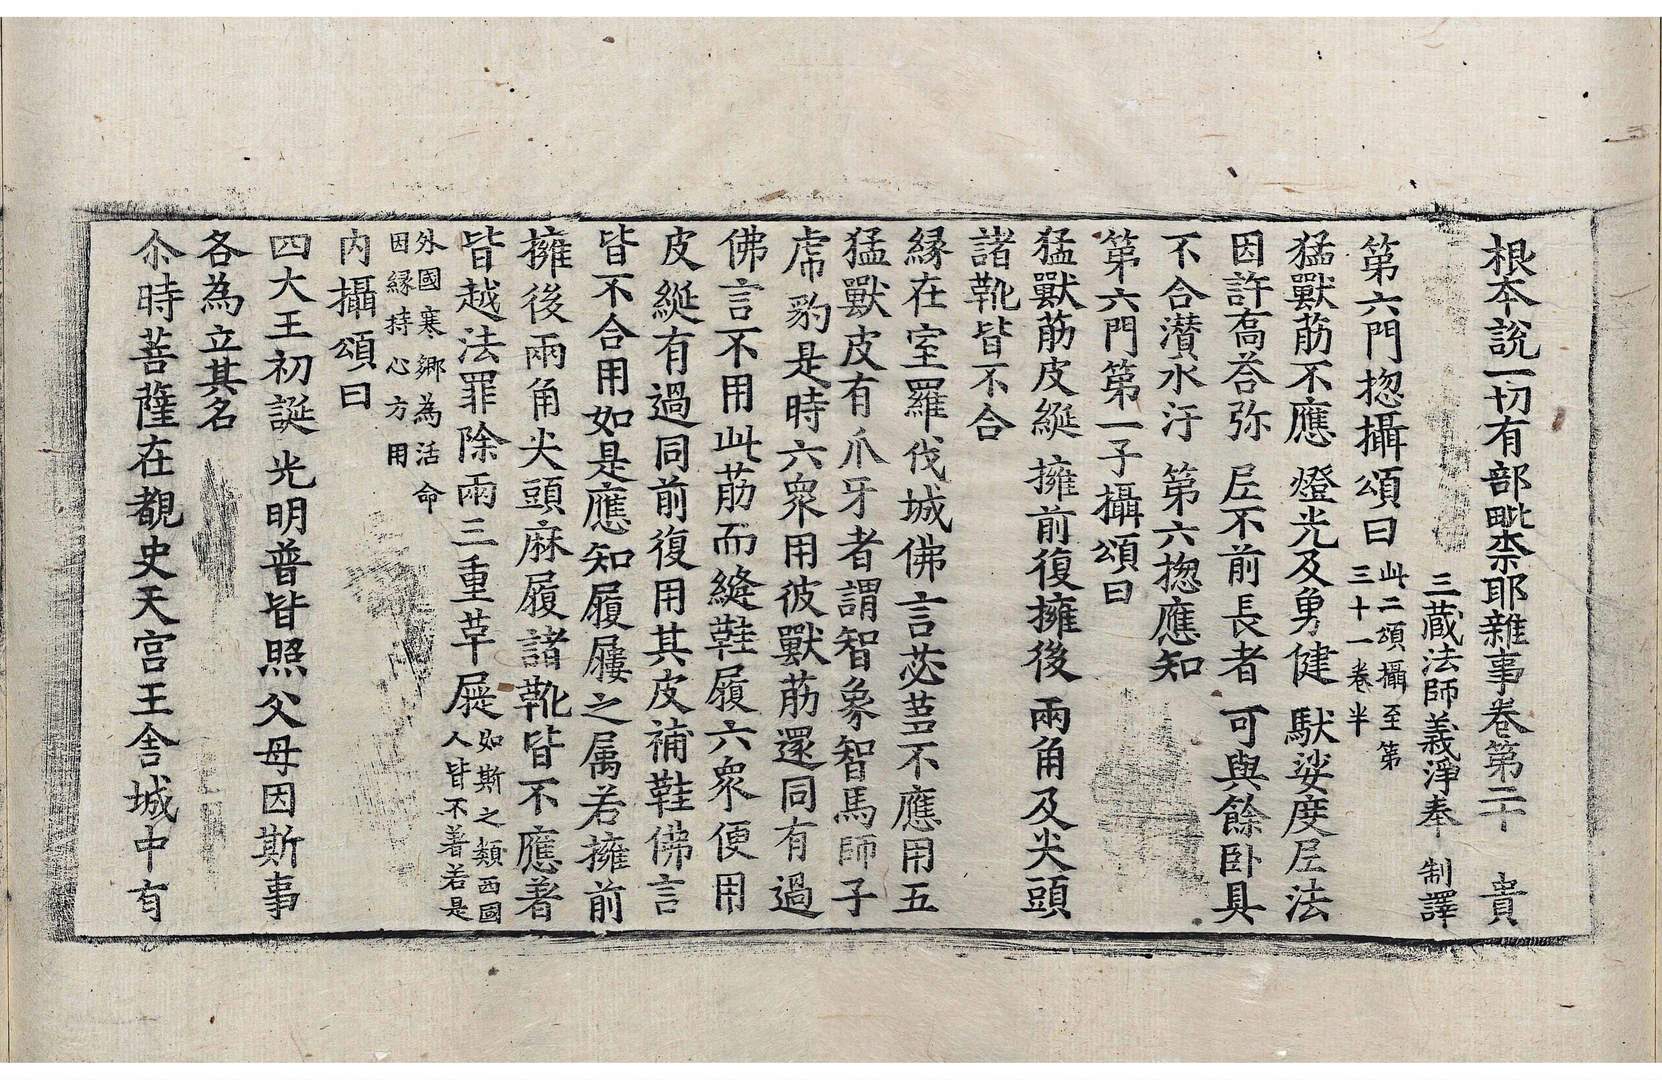 根本說一切有部毗柰耶雜事卷第二十 貴
三藏法師義淨奉 制譯
第六門揔攝頌曰 此二頌攝至第三十一卷半
猛獸筋不應 燈光及勇健 馱娑度尼法
因許喬荅弥 尼不前長者 可與餘卧具
不合濽水汙 第六揔應知
第六門第一子攝頌曰
猛獸筋皮綖 擁前復擁後 兩角及尖頭
諸靴皆不合
緣在室羅伐城佛言苾芻不應用五
猛獸皮有爪牙者謂智象智馬師子
虎豹是時六衆用彼獸筋還同有過
佛言不用此筋而縫鞋履六衆便用
皮綖有過同前復用其皮補鞋佛言
皆不合用如是應知履屨之属若擁前
擁後兩角尖頭麻履諸靴皆不應著
皆越法罪除兩三重草屣 如斯之類西國人皆不著若是
外國寒鄉為活命因緣持心方用
內攝頌曰
四大王初誕 光明普皆照 父母因斯事
各為立其名
尒時菩薩在覩史天宮王舍城中有